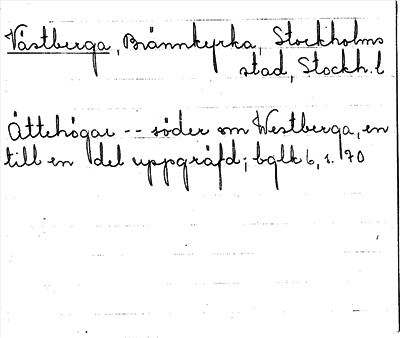 Västberga, Brännkyrka, Stockholms
stad, Stockh. l
Ättehögar -- söder om Westberga, en
till en del uppgräfd; bglk 6, s. 70